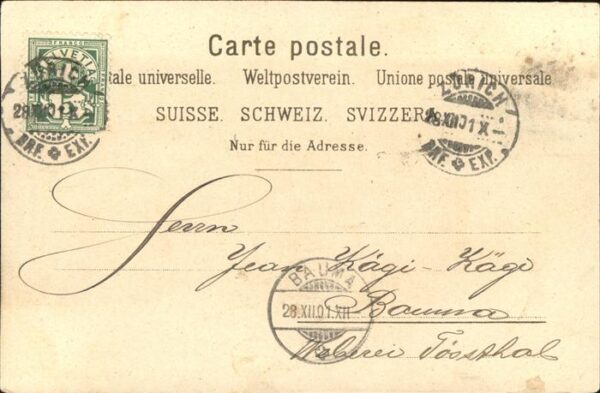 FRANCO
HELVETIA
Carte postale.
tale universelle. Weltpostverein. Unione postale universale
SUISSE. SCHWEIZ. SVIZZERA
Nur für die Adresse.
ZÜRICH
28.XII.01.X
BRF. EXP.
ZÜRICH
28.XII.01.X
BRF. EXP.
Herrn
Jean Kägi-Kägi
BAUMA
28.XII.01.XII
Bauma
Weberei Tössthal